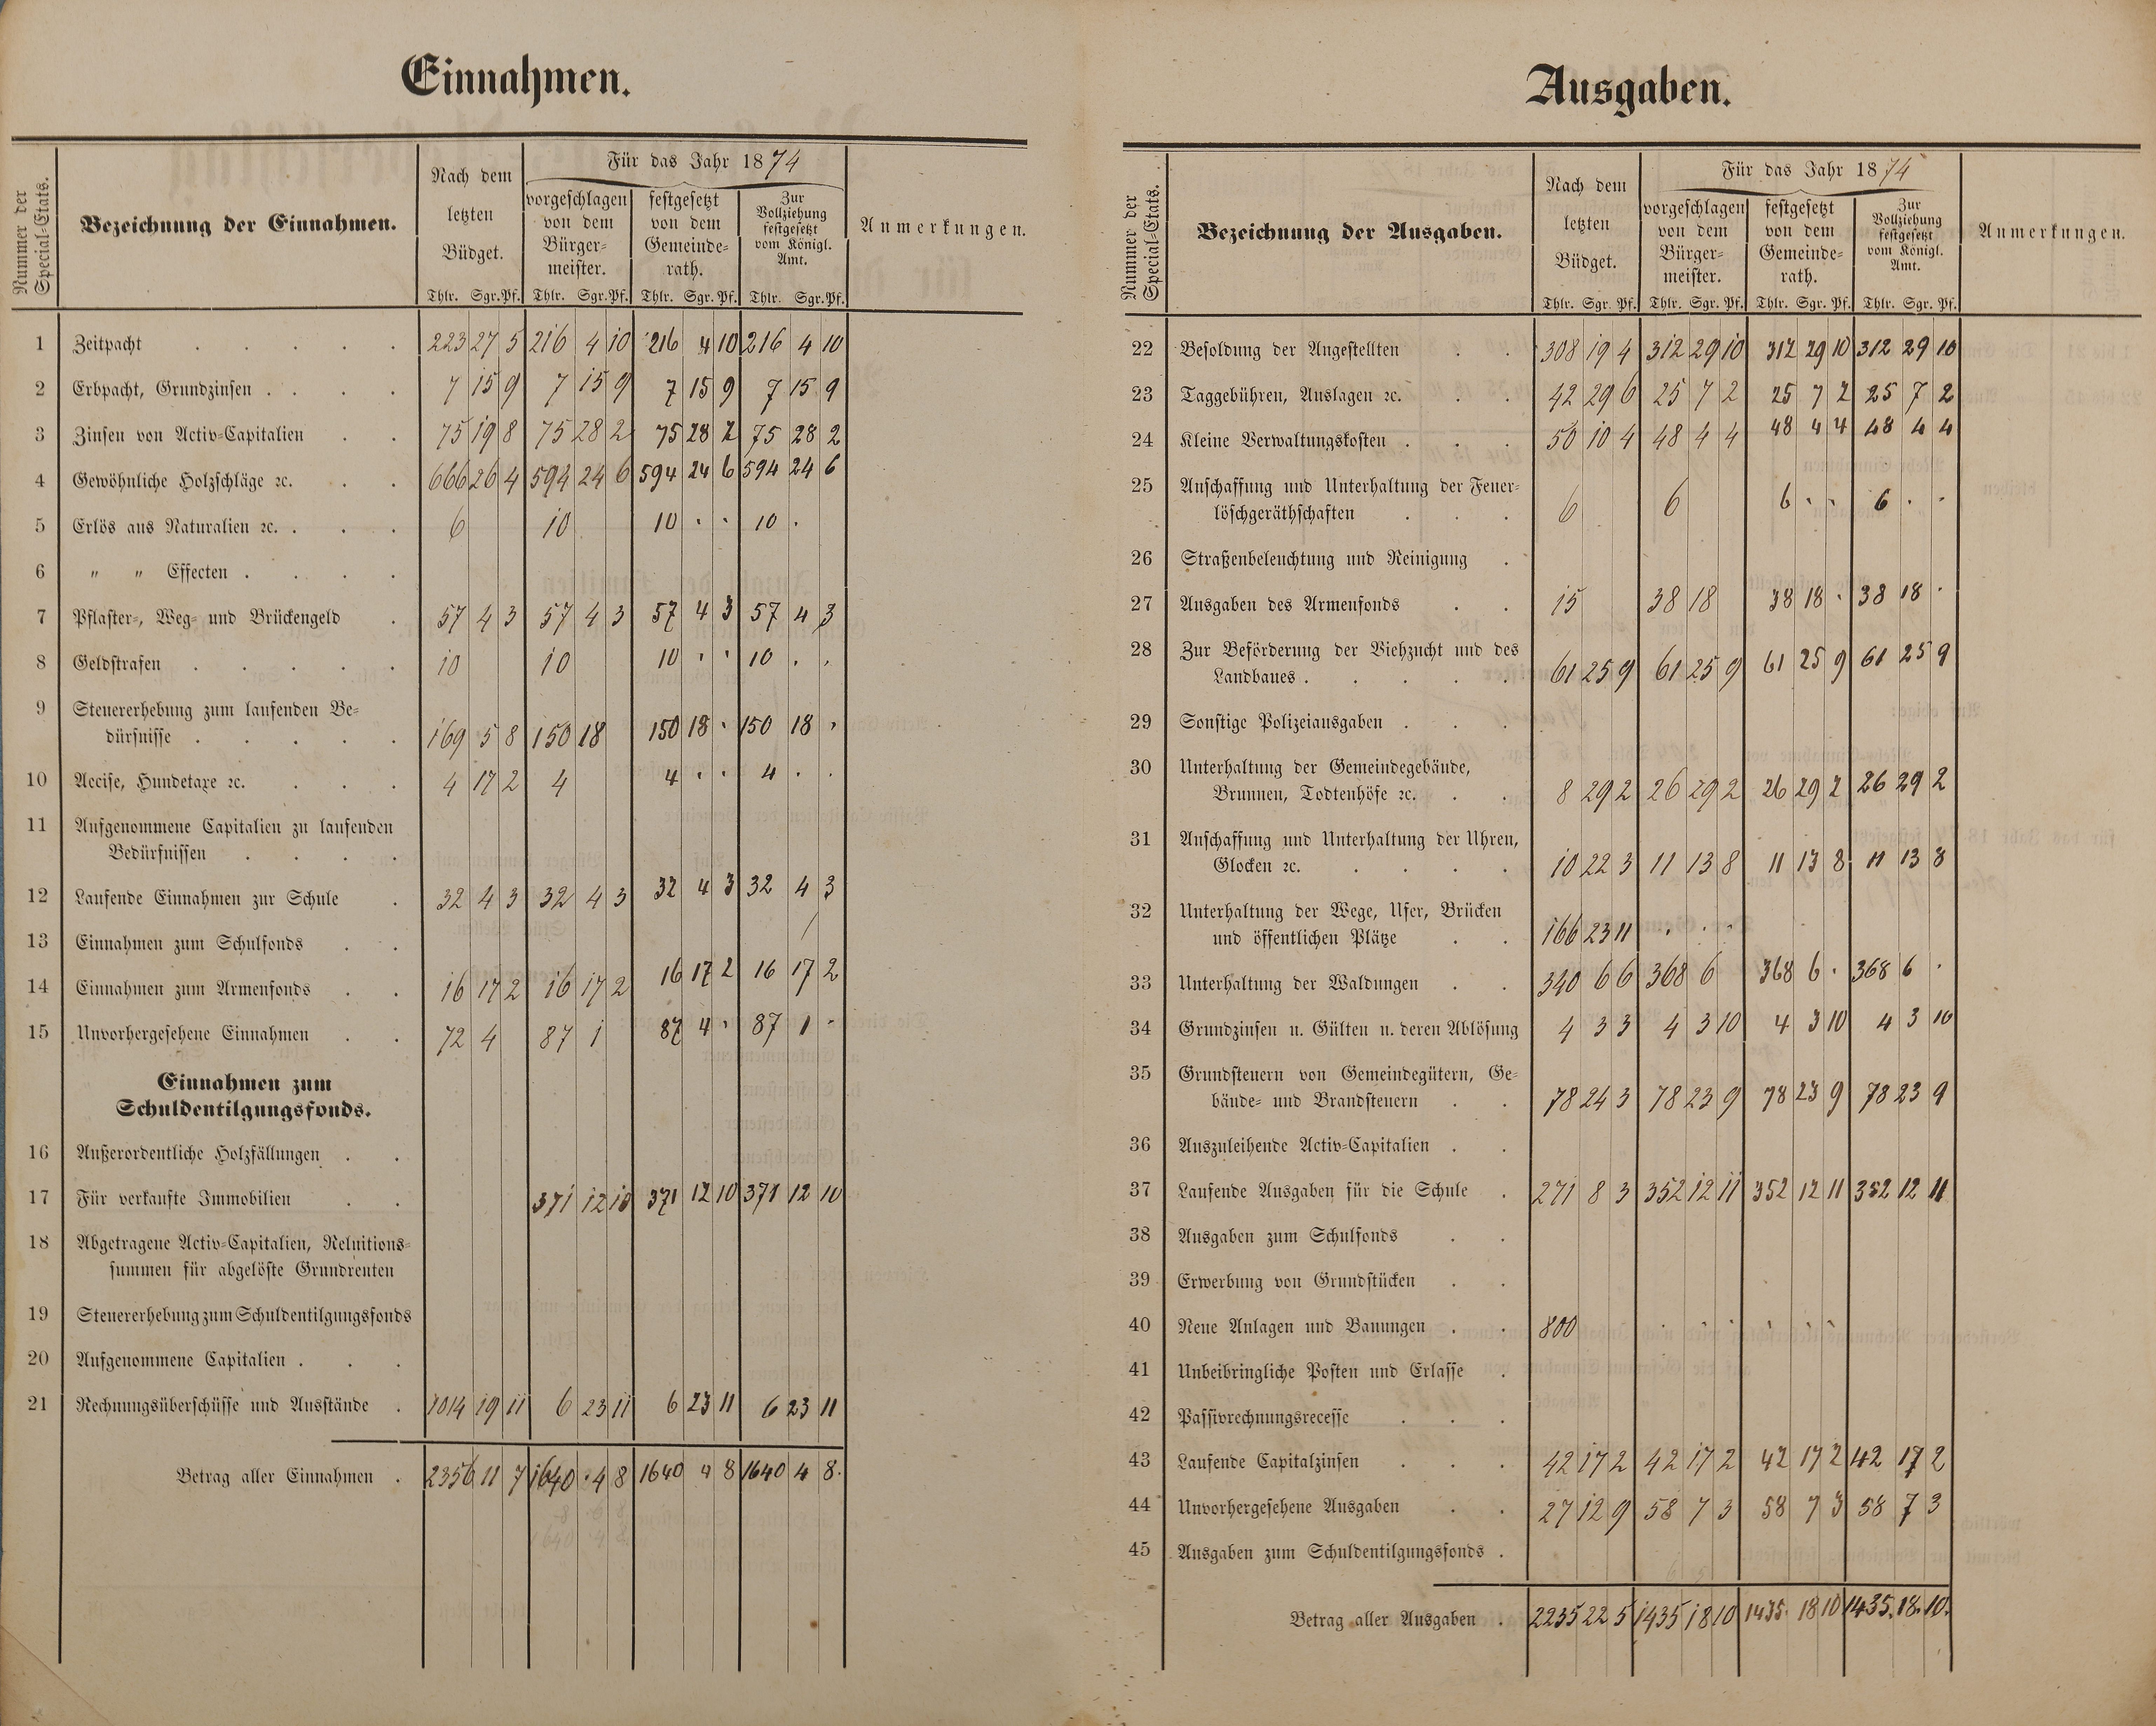 Einnahmen.
Nummer der Special-Etats.
Bezeichnung der Einnahmen.
Nach dem letzten Büdget.
Für das Jahr 1874
vorgeschlagen von dem Bürger-meister.
festgesetzt von dem Gemeinde-rath.
Zur Vollziehung festgesetzt vom Königl. Amt.
Anmerkungen.
Thlr. Sgr. Pf. Thlr. Sgr. Pf. Thlr. Sgr. Pf. Thlr. Sgr. Pf.
1 Zeitpacht . . . . . 223 27 5 216 4 10 216 4 10 216 4 10
2 Erbpacht, Grundzinsen . . . . 7 15 9 7 15 9 7 15 9 7 15 9
3 Zinsen von Activ-Capitalien . . 75 19 8 75 28 2 75 28 2 75 28 2
4 Gewöhnliche Holzschläge ꝛc. . . 666 26 4 594 24 6 594 24 6 594 24 6
5 Erlös aus Naturalien ꝛc. . . . 6 10 10 · · 10 ·
6 " " Effecten . . . .
7 Pflaster-, Weg- und Brückengeld . 57 4 3 57 4 3 57 4 3 57 4 3
8 Geldstrafen . . . . . 10 10 10 · · 10 · ·
9 Steuererhebung zum laufenden Be-
dürfnisse . . . . . 169 5 8 150 18 150 18 · 150 18 ·
10 Accise, Hundetaxe ꝛc. . . . 4 17 2 4 4 · · 4 · ·
11 Aufgenommene Capitalien zu laufenden
Bedürfnissen . . . .
12 Laufende Einnahmen zur Schule . 32 4 3 32 4 3 32 4 3 32 4 3
13 Einnahmen zum Schulfonds . .
14 Einnahmen zum Armenfonds . . 16 17 2 16 17 2 16 17 2 16 17 2
15 Unvorhergesehene Einnahmen . . 72 4 87 1 87 4 · 87 1 ·
Einnahmen zum
Schuldentilgungsfonds.
16 Außerordentliche Holzfällungen . .
17 Für verkaufte Immobilien . . 371 12 10 371 12 10 371 12 10
18 Abgetragene Activ-Capitalien, Reluitions-
summen für abgelöste Grundrenten
19 Steuererhebung zum Schuldentilgungsfonds
20 Aufgenommene Capitalien . . .
21 Rechnungsüberschüsse und Ausstände . 1014 19 11 6 23 11 6 23 11 6 23 11
Betrag aller Einnahmen . 2356 11 7 1640 · 4 8 1640 4 8 1640 4 8.
1640 4 8
Ausgaben.
Nummer der Special-Etats.
Bezeichnung der Ausgaben.
Nach dem letzten Büdget.
Für das Jahr 1874
vorgeschlagen von dem Bürger-meister.
festgesetzt von dem Gemeinde-rath.
Zur Vollziehung festgesetzt vom Königl. Amt.
Anmerkungen.
Thlr. Sgr. Pf. Thlr. Sgr. Pf. Thlr. Sgr. Pf. Thlr. Sgr. Pf.
22 Besoldung der Angestellten . . 308 19 4 312 29 10 312 29 10 312 29 10
23 Taggebühren, Auslagen ꝛc. . . 42 29 6 25 7 2 25 7 2 25 7 2
24 Kleine Verwaltungskosten . . . 50 10 4 48 4 4 48 4 4 48 4 4
25 Anschaffung und Unterhaltung der Feuer-
löschgeräthschaften . . . 6 6 6 · · 6 · ·
26 Straßenbeleuchtung und Reinigung .
27 Ausgaben des Armenfonds . . 15 38 18 38 18 · 38 18 ·
28 Zur Beförderung der Viehzucht und des
Landbaues . . . . . 61 25 9 61 25 9 61 25 9 61 25 9
29 Sonstige Polizeiausgaben . . .
30 Unterhaltung der Gemeindegebäude,
Brunnen, Todtenhöfe ꝛc. . . 8 29 2 26 29 2 26 29 2 26 29 2
31 Anschaffung und Unterhaltung der Uhren,
Glocken ꝛc. . . . . 10 22 3 11 13 8 11 13 8 11 13 8
32 Unterhaltung der Wege, Ufer, Brücken
und öffentlichen Plätze . . 166 23 11 · · ·
33 Unterhaltung der Waldungen . . 340 6 6 368 6 368 6 · 368 6 ·
34 Grundzinsen u. Gülten u. deren Ablösung 4 3 3 4 3 10 4 3 10 4 3 10
35 Grundsteuern von Gemeindegütern, Ge-
bäude- und Brandsteuern . . 78 24 3 78 23 9 78 23 9 78 23 9
36 Auszuleihende Activ-Capitalien . .
37 Laufende Ausgaben für die Schule . 271 8 3 352 12 11 352 12 11 352 12 11
38 Ausgaben zum Schulfonds . .
39 Erwerbung von Grundstücken . .
40 Neue Anlagen und Bauungen . . 800 · · · · · ·
41 Unbeibringliche Posten und Erlasse .
42 Passivrechnungsrecesse . . .
43 Laufende Capitalzinsen . . . 42 17 2 42 17 2 42 17 2 42 17 2
44 Unvorhergesehene Ausgaben . . 27 12 9 58 7 3 58 7 3 58 7 3
45 Ausgaben zum Schuldentilgungsfonds .
Betrag aller Ausgaben . 2235 22 5 1435 18 10 1435 18 10 1435. 18. 10.